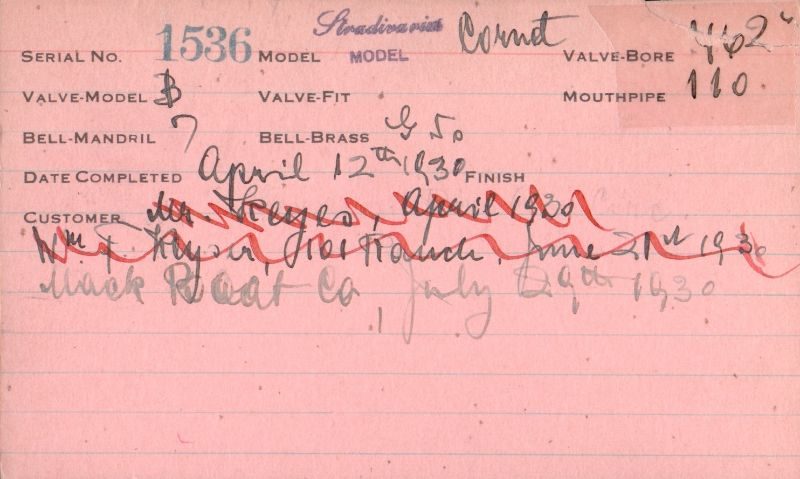 SERIAL NO. 1536 MODEL Stradivarius MODEL Cornet VALVE-BORE 462"
VALVE-MODEL B VALVE-FIT MOUTHPIPE 110
BELL-MANDRIL 7 BELL-BRASS G 50
DATE COMPLETED April 12th 1930 FINISH
CUSTOMER Mr. Keyes, April 1930
Wm F. 101 Ranch, June 21st 1930
Mack Co July 29th 1930